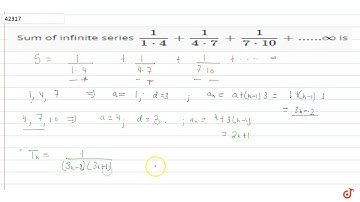 42317
Sum of infinite series 1/(1·4) + 1/(4·7) + 1/(7·10) + ......∞ is
S = 1/(1·4) + 1/(4·7) + 1/(7·10) + ---- ∞
1, 4, 7 ⇒ a = 1, d = 3 ; an = a+(n-1)3 = 1+(n-1)3
= 3n-2
4, 7, 10 ⇒ a = 4, d = 3 . ; an = 4+3(n-1)
= 3n+1
Tn = 1/((3n-2)(3n+1))